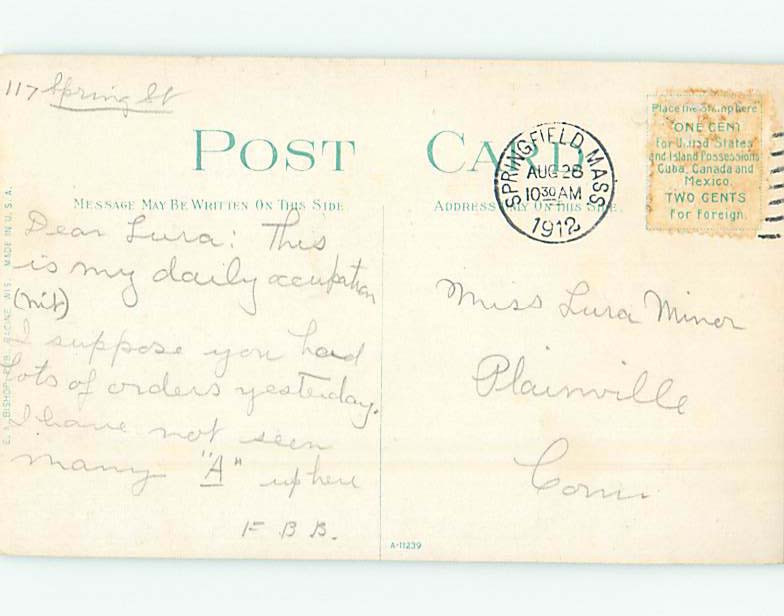 117 Spring St
POST CARD
MESSAGE MAY BE WRITTEN ON THIS SIDE
ADDRESS ONLY ON THIS SIDE.
SPRINGFIELD, MASS
AUG 28
10 30 AM
1912
Place the Stamp here
ONE CENT
For United States
and Island Possessions
Cuba, Canada and
Mexico.
TWO CENTS
For Foreign.
Dear Lura: This
is my daily occupation
(nit)
I suppose you had
lots of orders yesterday.
I have not seen
many "A" up here
F B B.
Miss Lura Minor
Plainville
Conn.
E. A. BISHOP, PUB. RACINE, WIS. MADE IN U. S. A.
A-11239